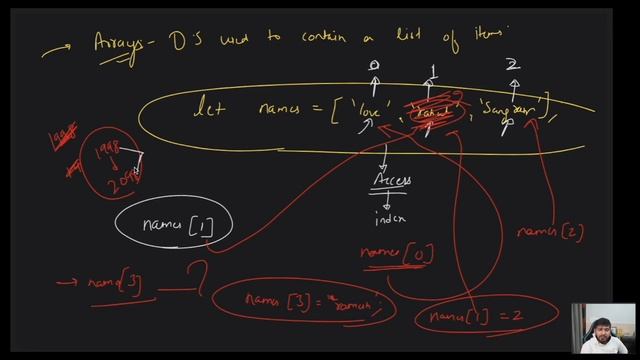 Arrays - D.S used to contain a list of items
0 1 2
let names = ['love', 'rahul', 'Sangram'];
1998
1998
2098
Access
index
names[1]
names[0]
names[2]
name[3] ?
names[3] = "ramesh";
names[1] = 2